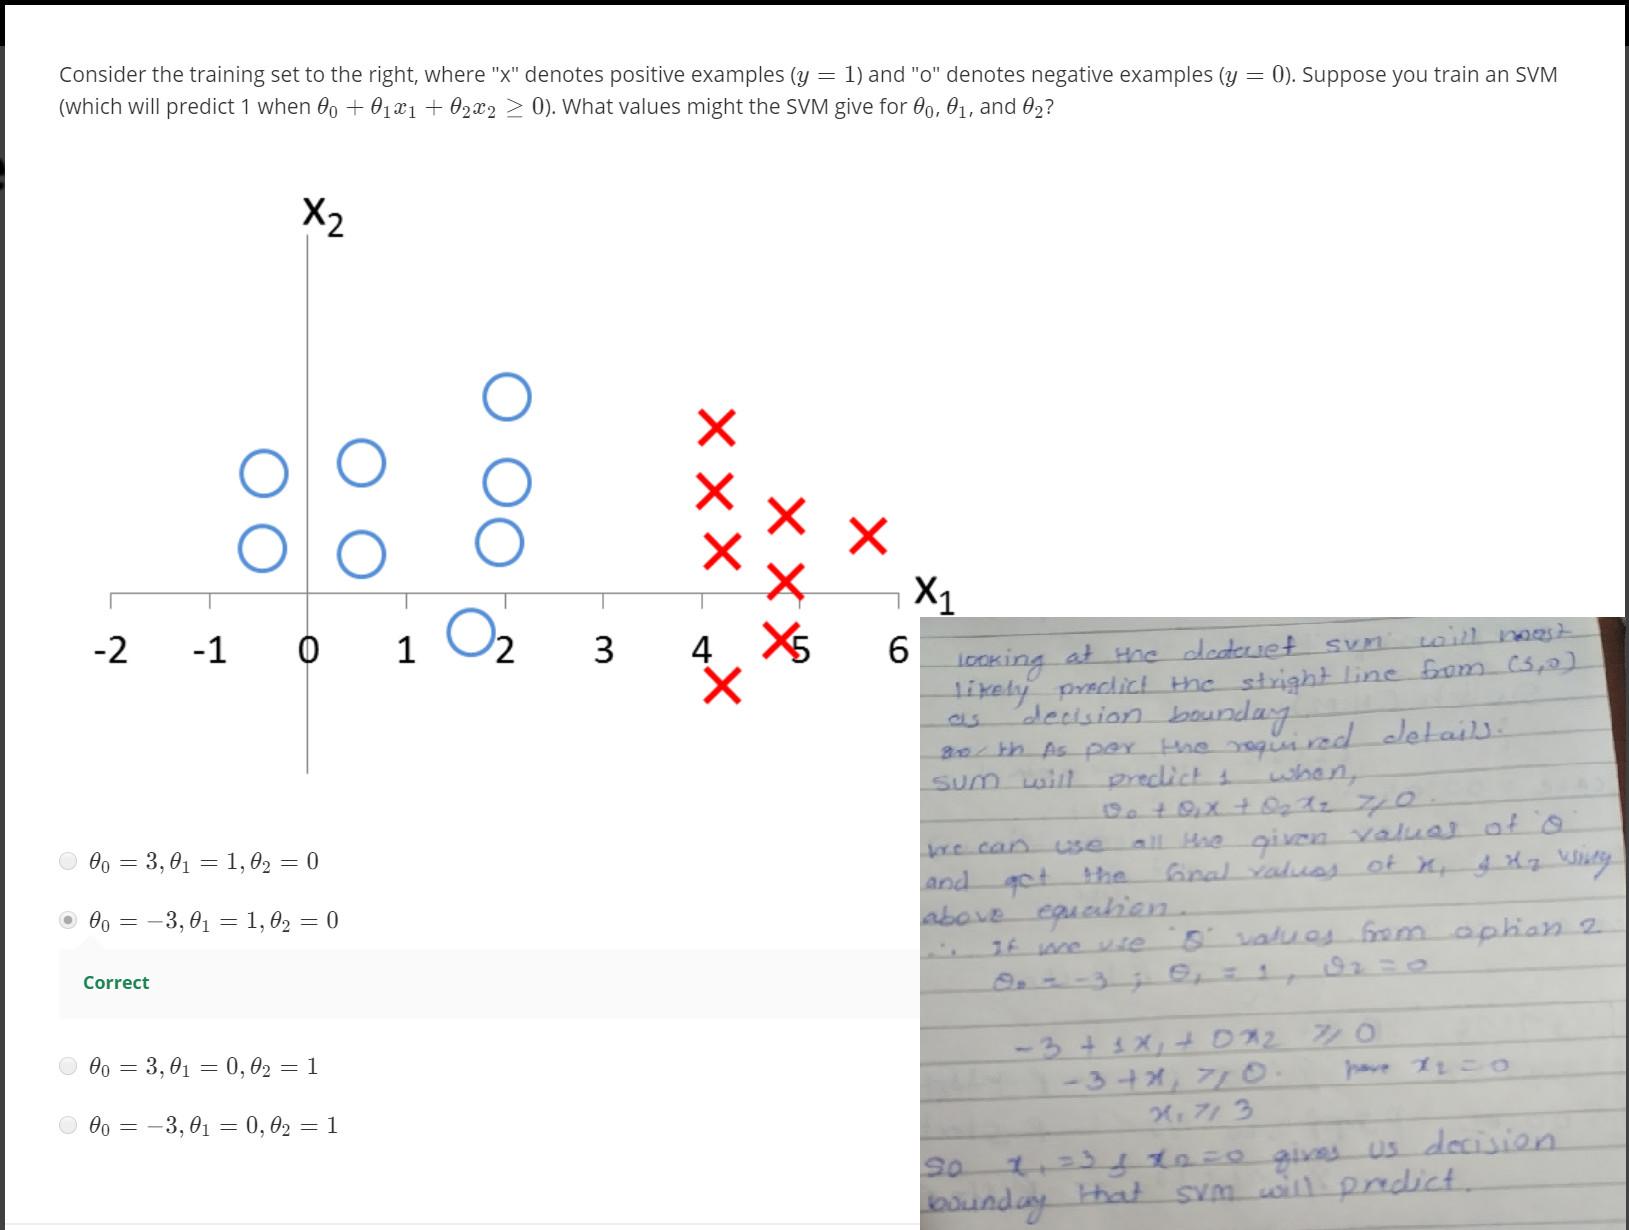 Consider the training set to the right, where "x" denotes positive examples (y = 1) and "o" denotes negative examples (y = 0). Suppose you train an SVM
(which will predict 1 when θ₀ + θ₁x₁ + θ₂x₂ ≥ 0). What values might the SVM give for θ₀, θ₁, and θ₂?
X₂
X₁
-2 -1 0 1 2 3 4 5 6
θ₀ = 3, θ₁ = 1, θ₂ = 0
θ₀ = −3, θ₁ = 1, θ₂ = 0
Correct
θ₀ = 3, θ₁ = 0, θ₂ = 1
θ₀ = −3, θ₁ = 0, θ₂ = 1
looking at the dataset svm will most
likely predict the stright line from (3,0)
as decision bounday
As per the required details.
svm will predict 1 when,
θ₀ + θ₁x + θ₂x₂ ≥ 0.
we can use all the given values of θ
and get the final values of x₁ & x₂ using
above equation.
∴ If we use 'θ' values from option 2
θ₀ = -3 ; θ₁ = 1, θ₂ = 0
-3 + 1x₁ + 0x₂ ≥ 0
-3 + x₁ ≥ 0. have x₂ = 0
x₁ ≥ 3
so x₁ = 3 & x₂ = 0 gives us decision
bounday that svm will predict.